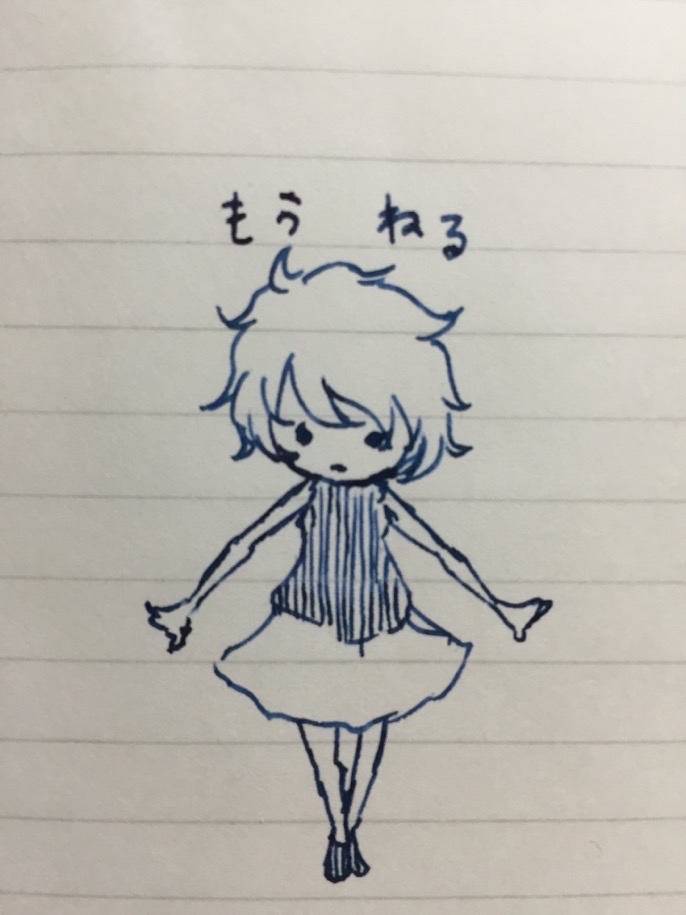 もう ねる